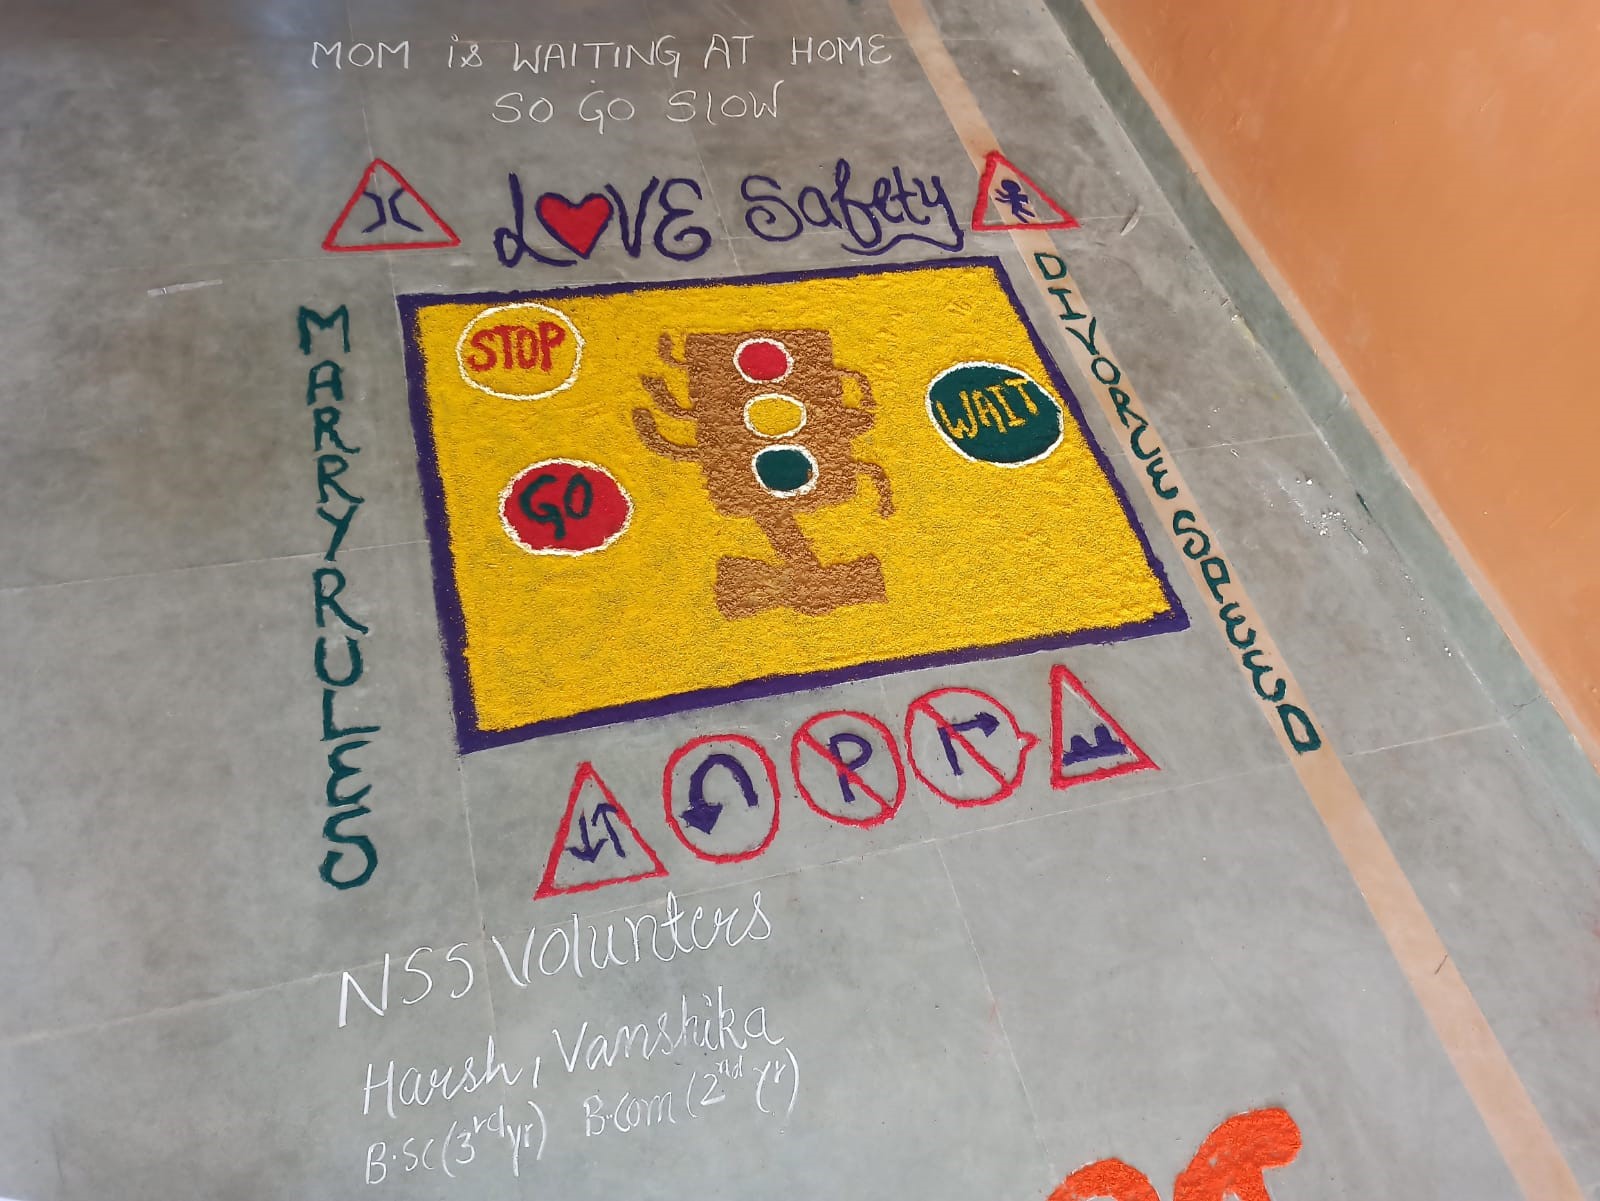 MOM is WAITING AT HOME
SO GO SLOW
LOVE Safety
MARRY RULES
STOP
GO
WAIT
DIVORCE SPEED
P
NSS Volunters
Harsh, Vanshika
B.SC (3rd yr) B.Com (2nd yr)